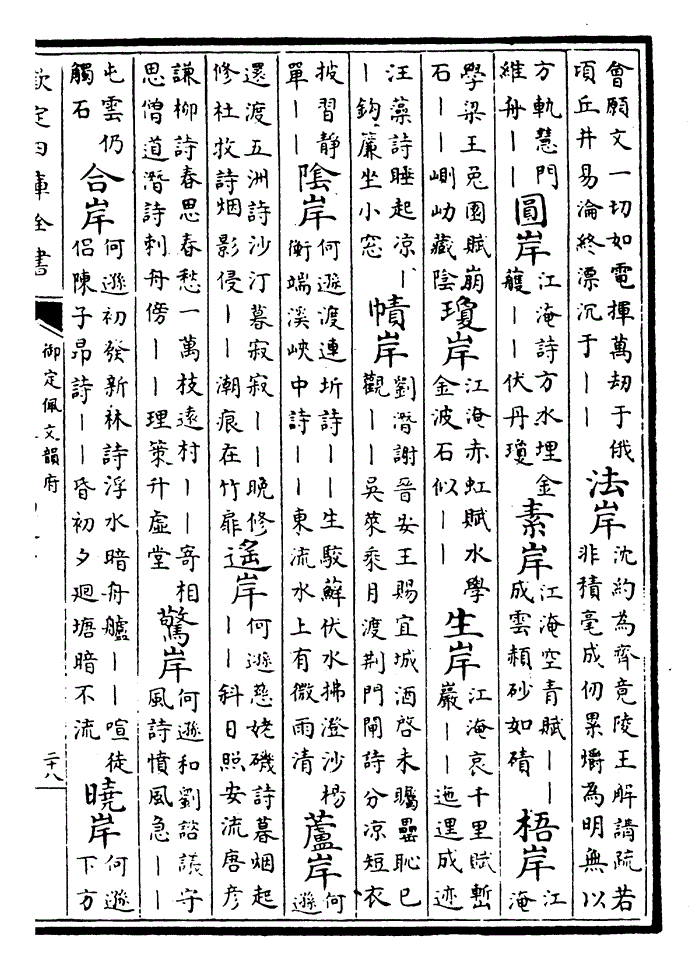 會願文一切如電揮萬劫于俄
項丘井易淪終漂沉于丨丨
法岸
沈約為齊竟陵王解講疏若
非積毫成仞累爝為明無以
方軌慧門
維舟丨丨
圓岸
江淹詩方水埋金
蒦丨丨伏丹瓊
素岸
江淹空青賦丨丨
成雲頳砂如磧
梧岸
江
淹
學梁王兎園賦崩
石丨丨崱岉藏陰
瓊岸
江淹赤虹賦水學
金波石似丨丨
生岸
江淹哀千里賦塹
巖丨丨迤邐成迹
汪藻詩睡起凉丨
丨鈎簾坐小窓
幘岸
劉潛謝晉安王賜宜城酒啓未矚罍恥已
觀丨丨吳萊乘月渡荆門閘詩分凉短衣
披習靜
單丨丨
隂岸
何遜渡連圻詩丨丨生駮蘚伏水拂澄沙楊
衡端溪峽中詩丨丨東流水上有微雨清
蘆岸
何
遜
還渡五洲詩沙汀暮寂寂丨丨晚修
修杜牧詩烟影侵丨丨潮痕在竹扉
遥岸
何遜慈姥磯詩暮烟起
丨丨斜日照安流唐彦
謙柳詩春思春愁一萬枝遠村丨丨寄相
思僧道潛詩刺舟傍丨丨理策升虛堂
驚岸
何遜和劉諮議守
風詩憤風急丨丨
屯雲仍
觸石
合岸
何遜初發新林詩浮水暗舟艫丨丨喧徒
侶陳子昂詩丨丨昏初夕廻塘暗不流
曉岸
何遜
下方
欽定四庫全書
御定佩文韻府
二十八